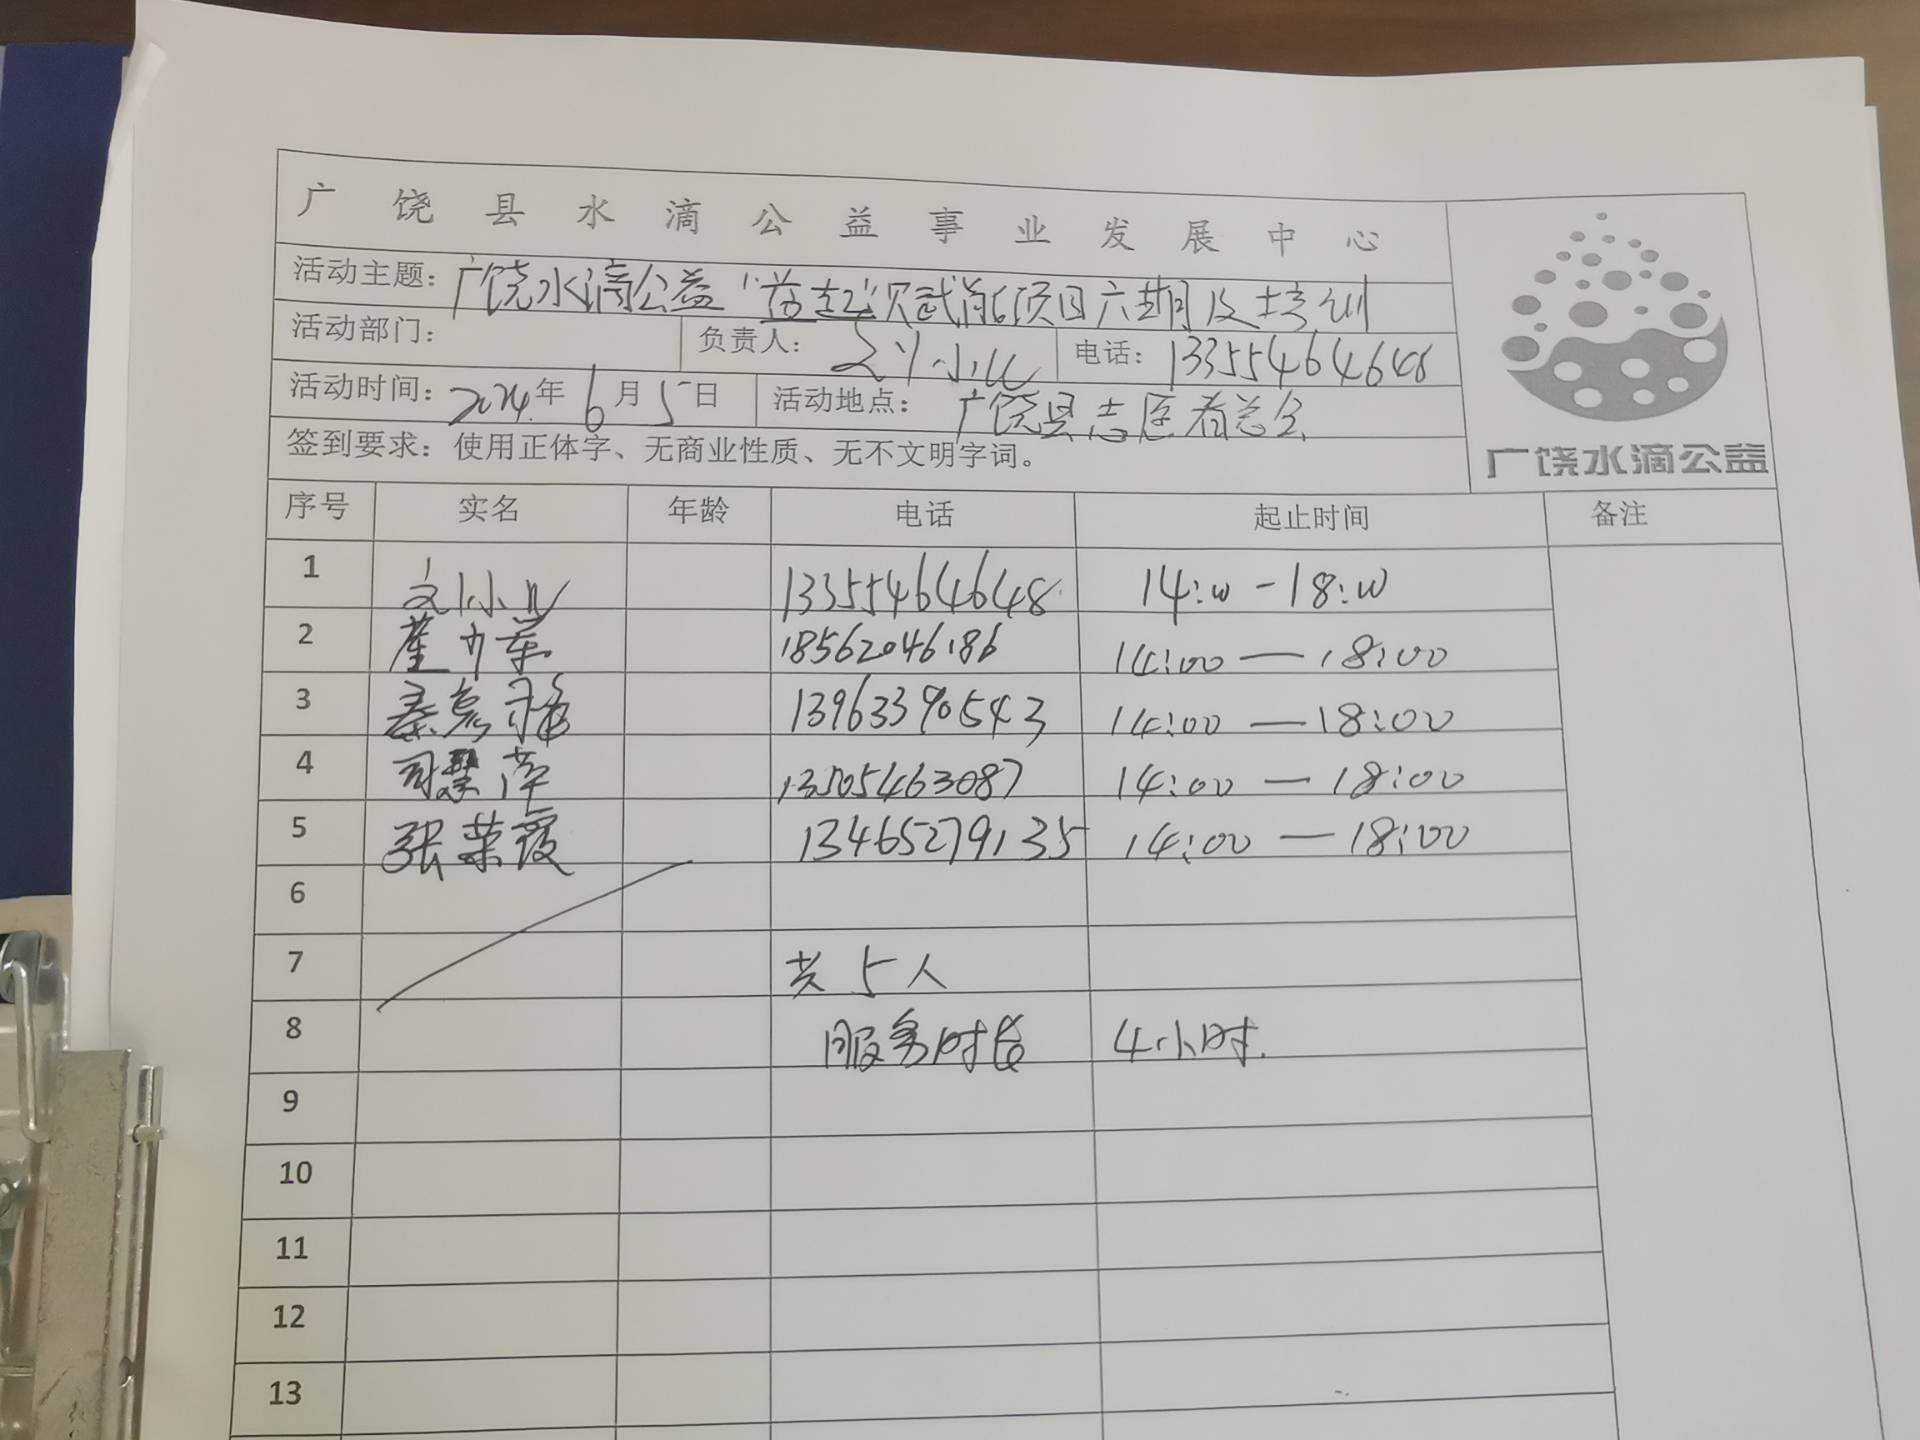 广饶县水滴公益事业发展中心
活动主题：广饶水滴公益“益起”赋能项目六期及培训
活动部门： 负责人：刘小 电话：13355464648
活动时间：2024年6月5日 活动地点：广饶县志愿者总会
签到要求：使用正体字、无商业性质、无不文明字词。
广饶水滴公益
序号 实名 年龄 电话 起止时间 备注
1 刘小 13355464648 14:00-18:00
2 崔 18562046186 14:00—18:00
3 秦 13963390543 14:00—18:00
4 司慧萍 13505463087 14:00—18:00
5 张荣霞 13465279135 14:00—18:00
6
7 共5人
8 服务时长 4小时.
9
10
11
12
13